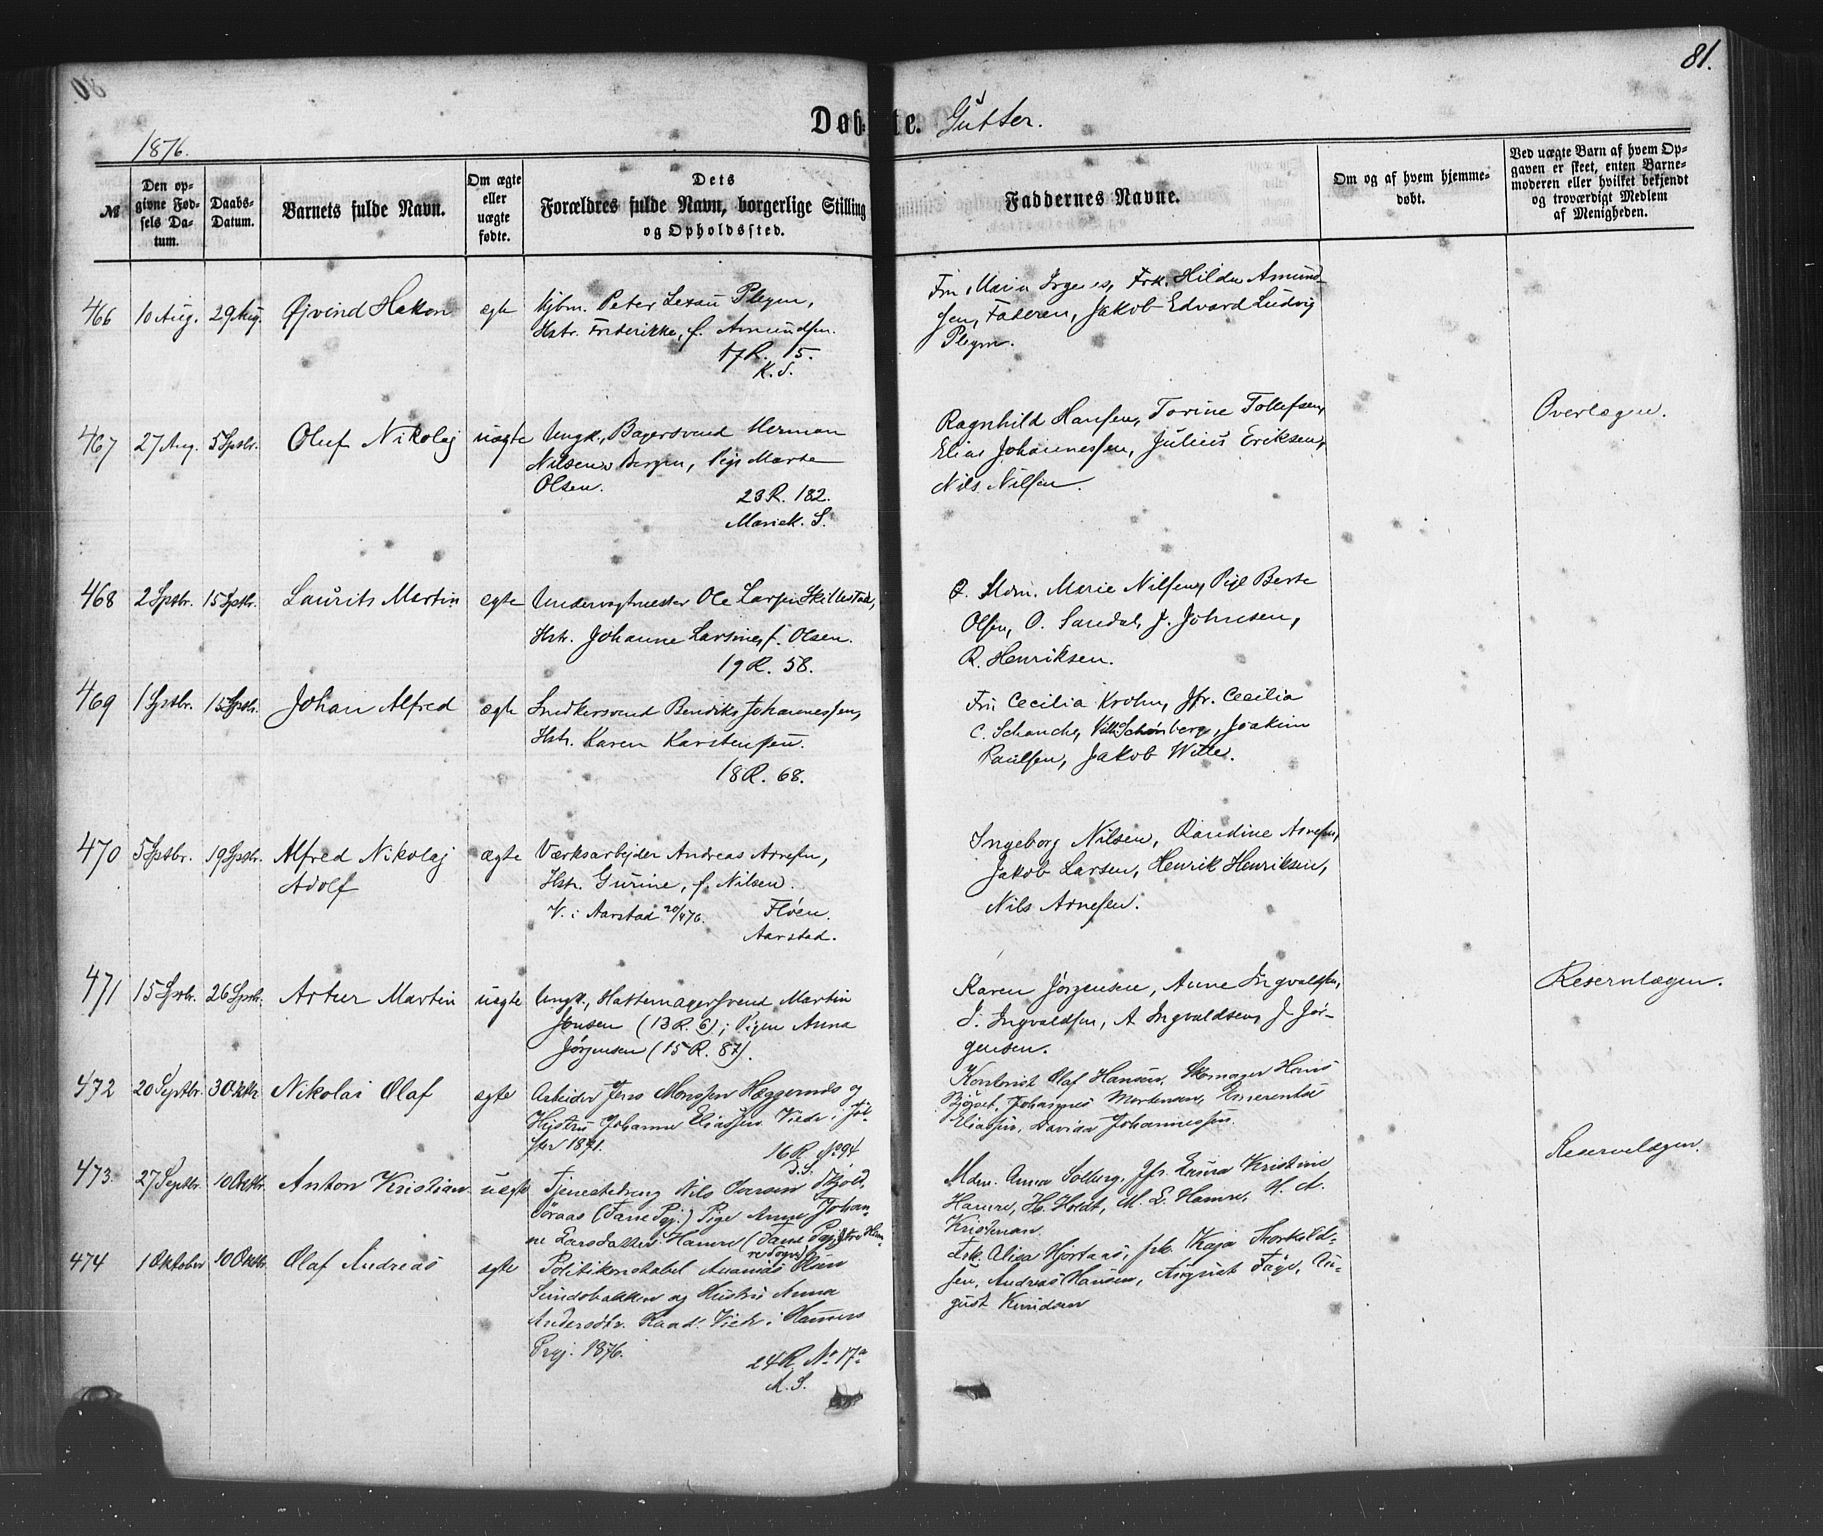 81.
1876.
Døbte. Gutter.
№
Den opgivne Fødsels Datum.
Daabs-Datum.
Barnets fulde Navn.
Om ægte eller uægte fødte.
Dets Forældres fulde Navn, borgerlige Stilling og Opholdssted.
Faddernes Navne.
Om og af hvem hjemmedøbt.
Ved uægte Barn af hvem Opgaven er skeet, enten Barnemoderen eller hvilket bekjendt og troværdigt Medlem af Menigheden.
466 10 Aug. 29 Aug. Øjvind Hakon egte Kjbm. Peter Lexau Plegm,
Hstr. Frederikke, f. Amundsen.
17 R. 15.
K. S.
Fru Maria Frk. Hilda Amund-
sen, Faderen, Jakob Edvard Ludvig
Plegm.
467 27 Aug. 5 Sptbr. Oluf Nikolaj uægte Ungk., Bagersvend Herman
Nilsen, Bergen, Pige Marte
Olsen.
23 R. 182.
Mariek. S.
Ragnhild Hansen, Torine Tollefsen,
Elias Johannessen, Julius Eriksen,
Nils Nilsen.
Overlægen.
468 2 Sptbr. 15 Sptbr. Laurits Martin egte Undervagtmester Ole Larsen Skillestad,
Hstr. Johanne Larsine, f. Olsen.
19 R. 58.
Mdm. Marie Nilsen, Pige Berte
Olsen, O. Sandal, J. Johnsen,
R. Henriksen.
469 1 Sptbr. 15 Sptbr. Johan Alfred ægte Snedkersvend Bendiks Johannessen,
Hstr. Karen Karstensen.
18 R. 68.
Fru Cecilia Krohn, Jfr. Cecilia
C. Schanche, Vilh. Schønberg, Joakim
Paulsen, Jakob Witte.
470 5 Sptbr. 19 Sptbr. Alfred Nikolaj
Adolf
ægte Værksarbejder Andreas Arnesen,
Hstr. Gurine, f. Nilsen.
V. i Aarstad 20/4 76. Fløen.
Aarstad.
Ingeborg Nilsen, Randine Arnesen,
Jakob Larsen, Henrik Henriksen,
Nils Arnesen.
471 15 Sptbr. 26 Sptbr. Artur Martin uegte Ungk., Hattemagersvend Martin
Jonsen (13 R. 6); Pigen Anna
Jørgensen (15 R. 87).
Karen Jørgensen, Anne Ingvaldsen,
J. Ingvaldsen, A Ingvaldsen, J Jør-
gensen.
Reservelægen.
472 20 Septbr. 3 Oktbr. Nikolai Olaf egte Arbeider Jens Monssen Hæggernæs og
Hustru Johanne Eliassen Viede i Jøl-
ster 1871.
16 R. No 94
D. S.
Kontorist Olaf Hansen, Skomager Hans
Johannes Mortensen, Emerentse
Eliassen, Davida Johannessen.
473. 27 Septbr. 10 Oktbr. Anton Kristian uegte Tjenestedreng Nils Iversen Skjold,
(Fane Pgj.) Pige Anne Johan-
ne Larsdatter Hamre (Fane Pgj.
Mdm. Anna Solberg, Jfr. Laura Kristine
Hamre, H. Holdt, M. L. Hamre, H. A.
Kristensen
Reservelægen.
474 1 Oktober 10 Oktbr. Olaf Andreas egte Politikonstabel Ananias Olsen
Sundsbakken og Hustru Anna
Andersdtr. Raad. Viede i Hammers
Prgj. 1876.
24 R. No 17a
M. S.
Frk. Alisa Hjortaas, frk. Kaja Thorkild-
sen, Andreas Hansen, August Fage, Au-
gust Knudsen